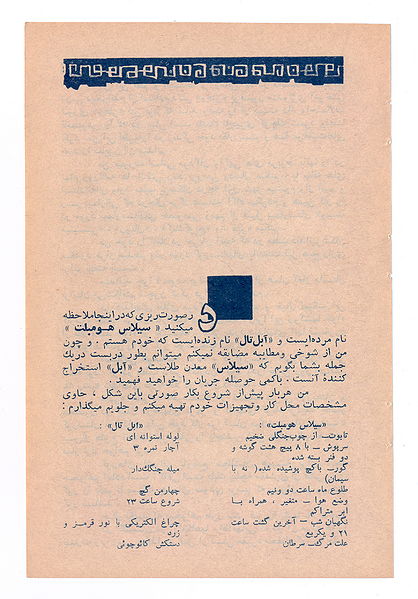 در صورت ریزی که در اینجا ملاحظه
میکنید « سیلاس هومبلت »
نام مرده‌ایست و «آبل تال» نام زنده‌ایست که خودم هستم . و چون
من از شوخی ومطایبه مضایقه نمیکنم میتوانم بطور دربست دریك
جمله بشما بگویم که «سیلاس» معدن طلاست و «آبل» استخراج
کنندهٔ آنست . باکمی حوصله جریان را خواهید فهمید .
من هربار پیش‌از شروع بکار صورتی باین شکل ، حاوی
مشخصات محل کار وتجهیزات خودم تهیه میکنم و جلویم میگذارم :
«سیلاس هومبلت» :
تابوت- از چوب‌جنگلی ضخیم
سرپوش - با ۸ پیچ هشت گوشه و
دو فنر بسته شده
گور- باگچ پوشیده شده( نه با
سیمان)
طلوع ماه ساعت دو ونیم
وضع هوا - متغیر ، همراه با
ابر متراکم
نگهبان شب - آخرین گشت ساعت
۲۱ و یکربع
علت مرگ- سرطان
«ابل تال» :
لوله استوانه ای
آچار نمره ۳
میله چنگك‌دار
چهارمن گچ
شروع ساعت ۲۳
چراغ الکتریکی با نور قرمز و
زرد
دستکش کائوچوئی